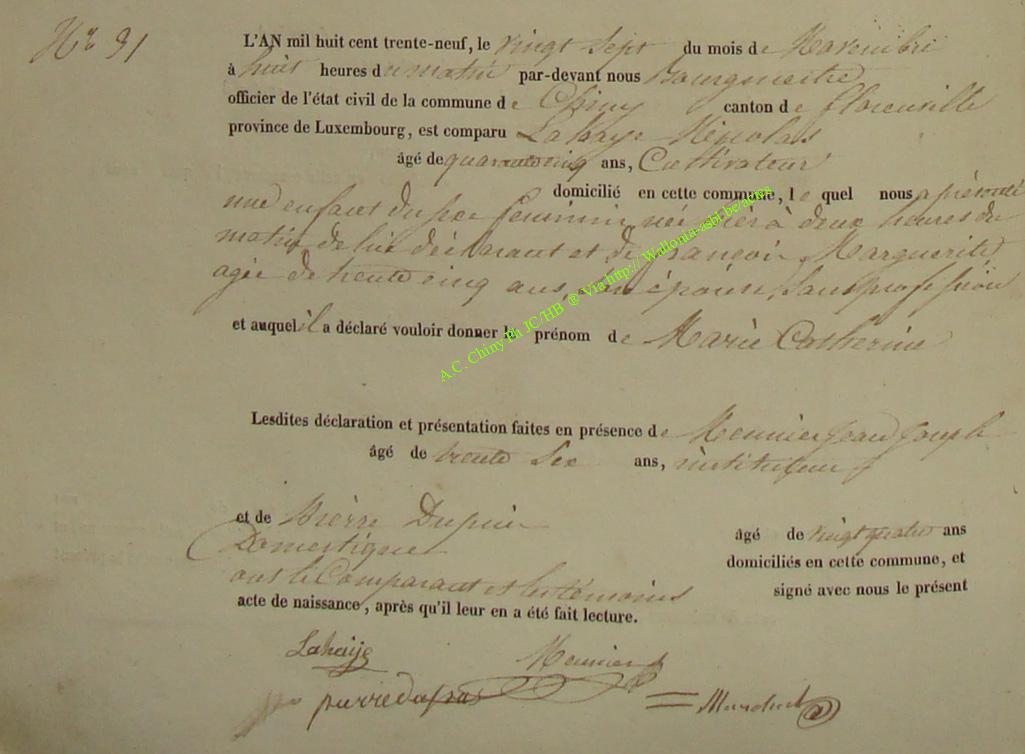 N° 31
L'AN mil huit cent trente-neuf, le vingt sept du mois de Novembre
à huit heures du matin par-devant nous Bourgmestre
officier de l'état civil de la commune de Chiny canton de florenville
province de Luxembourg, est comparu Lahaye Nicolas
âgé de quarante cinq ans, Cultivateur
domicilié en cette commune, le quel nous a présenté
une enfant du sexe féminin née hier à deux heures du
matin de lui déclarant et de françois Marguerite
agée de trente cinq ans, son épouse, Sans profession
et auquel il a déclaré vouloir donner le prénom de Marie Catherine
A.C. Chiny Ph JC/HB @ Via http:// Wallonia-asbl.be/actes
Lesdites déclaration et présentation faites en présence de Meunier Jean Joseph
âgé de trente Six ans, instituteur
et de Pierre âgé de vingt quatre ans
Domestique domiciliés en cette commune, et
ont le Comparant et les témoins signé avec nous le présent
acte de naissance, après qu'il leur en a été fait lecture.
Lahaije Meunier
pierre